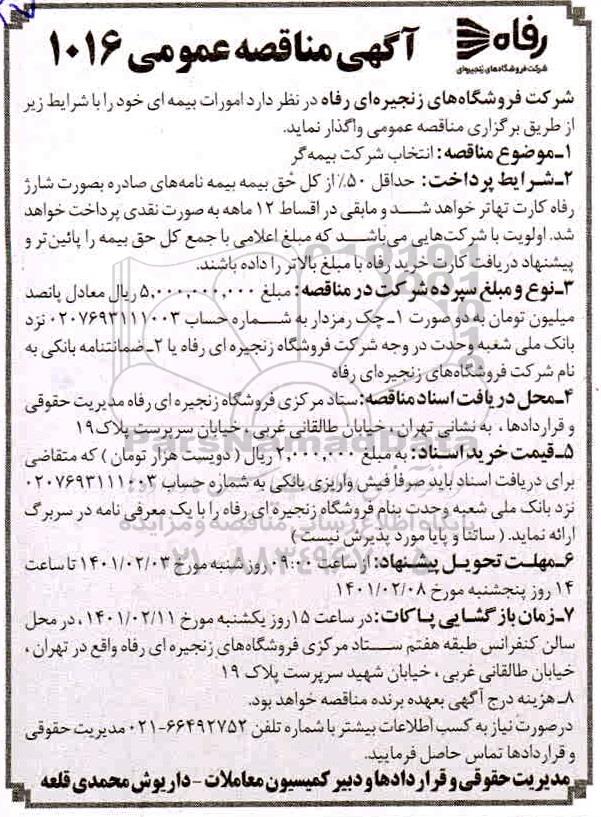 رفاه
شرکت فروشگاه‌های زنجیره‌ای
آگهی مناقصه عمومی ۱۰۱۶
شرکت فروشگاه‌های زنجیره‌ای رفاه در نظر دارد امورات بیمه ای خود را با شرایط زیر
از طریق برگزاری مناقصه عمومی واگذار نماید.
۱ـ موضوع مناقصه: انتخاب شرکت بیمه‌گر
۲ـ شرایط پرداخت: حداقل ۵۰٪ از کل حق بیمه بیمه نامه‌های صادره بصورت شارژ
رفاه کارت تهاتر خواهد شد و مابقی در اقساط ۱۲ ماهه به صورت نقدی پرداخت خواهد
شد. اولویت با شرکت‌هایی می‌باشد که مبلغ اعلامی با جمع کل حق بیمه را پائین‌تر و
پیشنهاد دریافت کارت خرید رفاه با مبلغ بالاتر را داده باشند.
۳ـ نوع و مبلغ سپرده شرکت در مناقصه: مبلغ ۵,۰۰۰,۰۰۰,۰۰۰ ریال معادل پانصد
میلیون تومان به دو صورت ۱ـ چک رمزدار به شماره حساب ۰۲۰۷۶۹۳۱۱۱۰۰۳ نزد
بانک ملی شعبه وحدت در وجه شرکت فروشگاه زنجیره ای رفاه یا ۲ـ ضمانتنامه بانکی به
نام شرکت فروشگاه‌های زنجیره‌ای رفاه
۴ـ محل دریافت اسناد مناقصه: ستاد مرکزی فروشگاه زنجیره ای رفاه مدیریت حقوقی
و قراردادها ، به نشانی تهران ، خیابان طالقانی غربی ، خیابان سرپرست پلاک ۱۹
۵ـ قیمت خرید اسناد: به مبلغ ۲,۰۰۰,۰۰۰ ریال ( دویست هزار تومان ) که متقاضی
برای دریافت اسناد باید صرفاً فیش واریزی بانکی به شماره حساب ۰۲۰۷۶۹۳۱۱۱۰۰۳
نزد بانک ملی شعبه وحدت بنام فروشگاه زنجیره ای رفاه را با یک معرفی نامه در سربرگ
ارائه نماید. ( ساتنا و پایا مورد پذیرش نیست )
۶ـ مهلت تحویل پیشنهاد: از ساعت ۰۹:۰۰ روز شنبه مورخ ۱۴۰۱/۰۲/۰۳ تا ساعت
۱۴ روز پنجشنبه مورخ ۱۴۰۱/۰۲/۰۸
۷ـ زمان بازگشایی پاکات: در ساعت ۱۵ روز یکشنبه مورخ ۱۴۰۱/۰۲/۱۱ ، در محل
سالن کنفرانس طبقه هفتم ستاد مرکزی فروشگاه‌های زنجیره ای رفاه واقع در تهران ،
خیابان طالقانی غربی ، خیابان شهید سرپرست پلاک ۱۹
۸ـ هزینه درج آگهی بعهده برنده مناقصه خواهد بود.
درصورت نیاز به کسب اطلاعات بیشتر با شماره تلفن ۶۶۴۹۲۷۵۲-۰۲۱ مدیریت حقوقی
و قراردادها تماس حاصل فرمایید.
مدیریت حقوقی و قراردادها و دبیر کمیسیون معاملات - داریوش محمدی قلعه
ParsNamadData
پایگاه اطلاع رسانی مناقصه و مزایده
۰۲۱-۸۸۳۴۹۶۷۰-۵